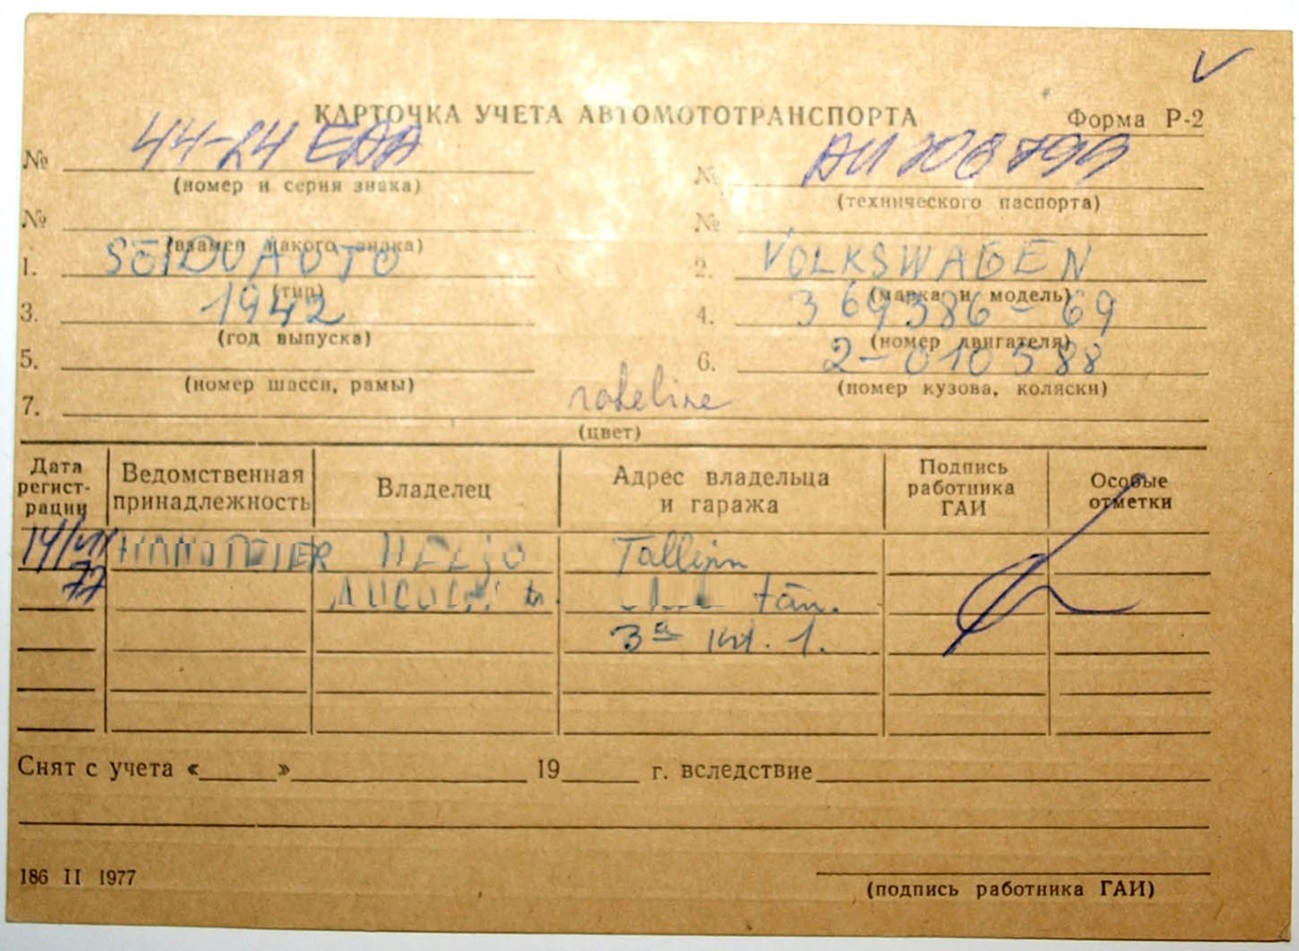 КАРТОЧКА УЧЕТА АВТОМОТОТРАНСПОРТА Форма Р-2
№ 44-24 ЕАА № 
(номер и серия знака) (технического паспорта)
№ №
(взамен какого знака)
1. SÕIDUAUTO 2. VOLKSWAGEN
(тип) (марка и модель)
3. 1942 4. 369386-69
(год выпуска) (номер двигателя)
5. 6. 2-010588
(номер шасси, рамы) (номер кузова, коляски)
7. roheline
(цвет)
Дата регист-рации Ведомственная принадлежность Владелец Адрес владельца и гаража Подпись работника ГАИ Особые отметки
14/VII HELJO Tallinn
77 tän.
3ª krt. 1.
Снят с учета « » 19 г. вследствие
186 II 1977
(подпись работника ГАИ)